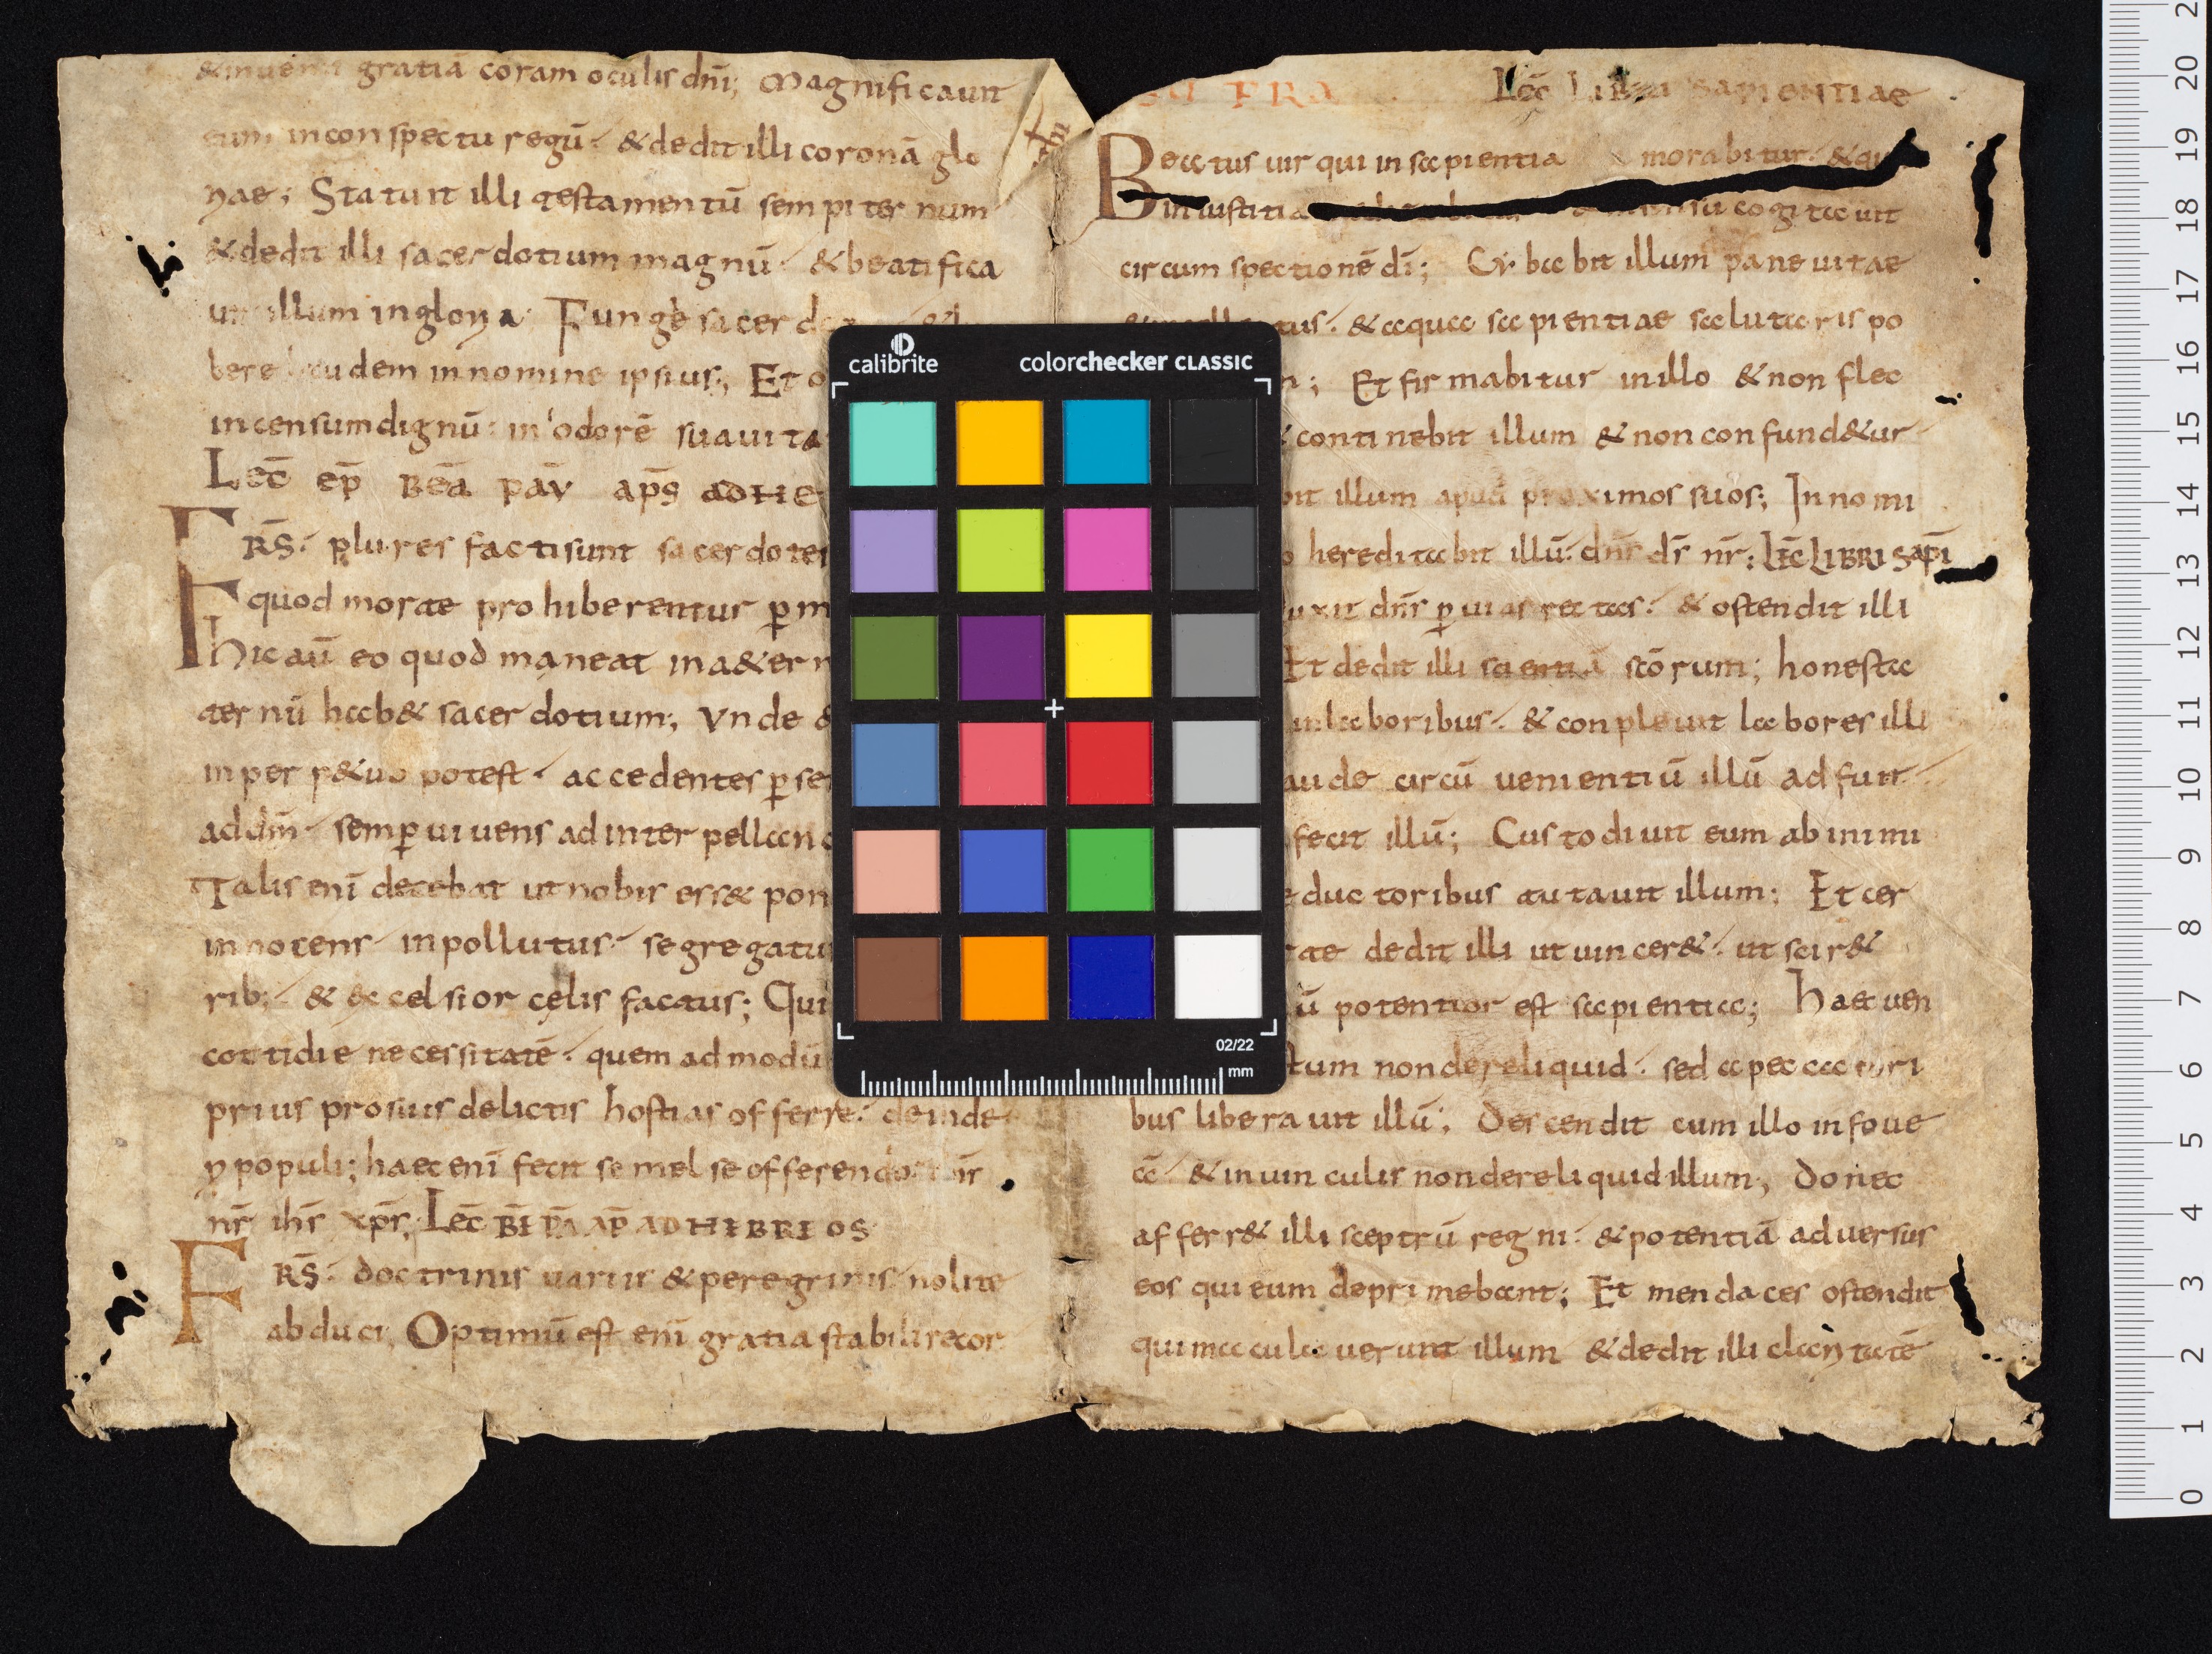 gratiā coram oculis dn̄i; Magnificauit
eum inconspectu regū· & dedit illi coronā glo
riae; Statuit illi testamentū sempiternum
& dedit illi sacerdotium magnū· & beatifica
uit illum ingloria· Fungẻ sacer
bere laudem innomine ipsius; Et o
incensum dignū· in odorē suauita
Lec̄ ep̄ Beā pav̄ ap̄s adhe
FRS̄· plures facti sunt sacerdotes
quod morte prohiberentur ꝑ m
hic aū eo quod maneat in a&ern
ternū hab& sacerdotium; Vnde &
inperp&uo potest· accedentes ꝑ se
ad dm̄· semꝑ uiuens ad interpellan
Talis enī decebat ut nobis ess& pon
innocens· inpollutus· segregatu
rib;· & &celsior cęlis factus; Qui
cottidie necessitatē· quem ad modū
prius pro suis delictis hostias offerre· deinde
ꝓ populi; haec enī fecit semel se offerendo·
nr̄ ihs̄ xp̄s; Lec̄ BĪ PĀ AP̄ ADHEBREOS
FRS̄· doctrinis uariis & peregrinis nolite
abduci; Optimū est enī gratia stabilire cor
FRA Lec̄ Libri sapientiae
Beatus uir qui in sapientia morabitur· & qui
in iustitia su cogitauit
circumspectionē dī; Cybabit illum pane uitae
tus· & aqua sapientiae salutaris po
Et firmabitur in illo & non flec
continebit illum & non confund&ur
bit illum apud proximos suos; In nomi
hereditabit illū· dn̄s ds̄ nr̄; Lec̄ LIBRI sapī
uxit dn̄s ꝑ uias rectas· & ostendit illi
Et dedit illi scientiā scōrum; honesta
in laboribus· & conpleuit labores illi
aude circūuenientiū illū adfuit
fecit illū; Custodiuit eum ab inimi
eductoribus tutauit illum; Et cer
dedit illi ut uincer&· ut scir&
ū potentior est sapientia; haec uen
tum non dereliquid· sed a peccatori
bus liberauit illū; Descendit cum illo in foue
a· & in uinculis non dereliquid illum; donec
afferr& illi sceptrū regni· & potentiā aduersus
eos qui eum deprimebant; Et mendaces ostendit
qui maculauerunt illum & dedit illi claritatē
calibrite
colorchecker CLASSIC
02/22
mm
20
19
18
17
16
15
14
13
12
11
10
9
8
7
6
5
4
3
2
1
0